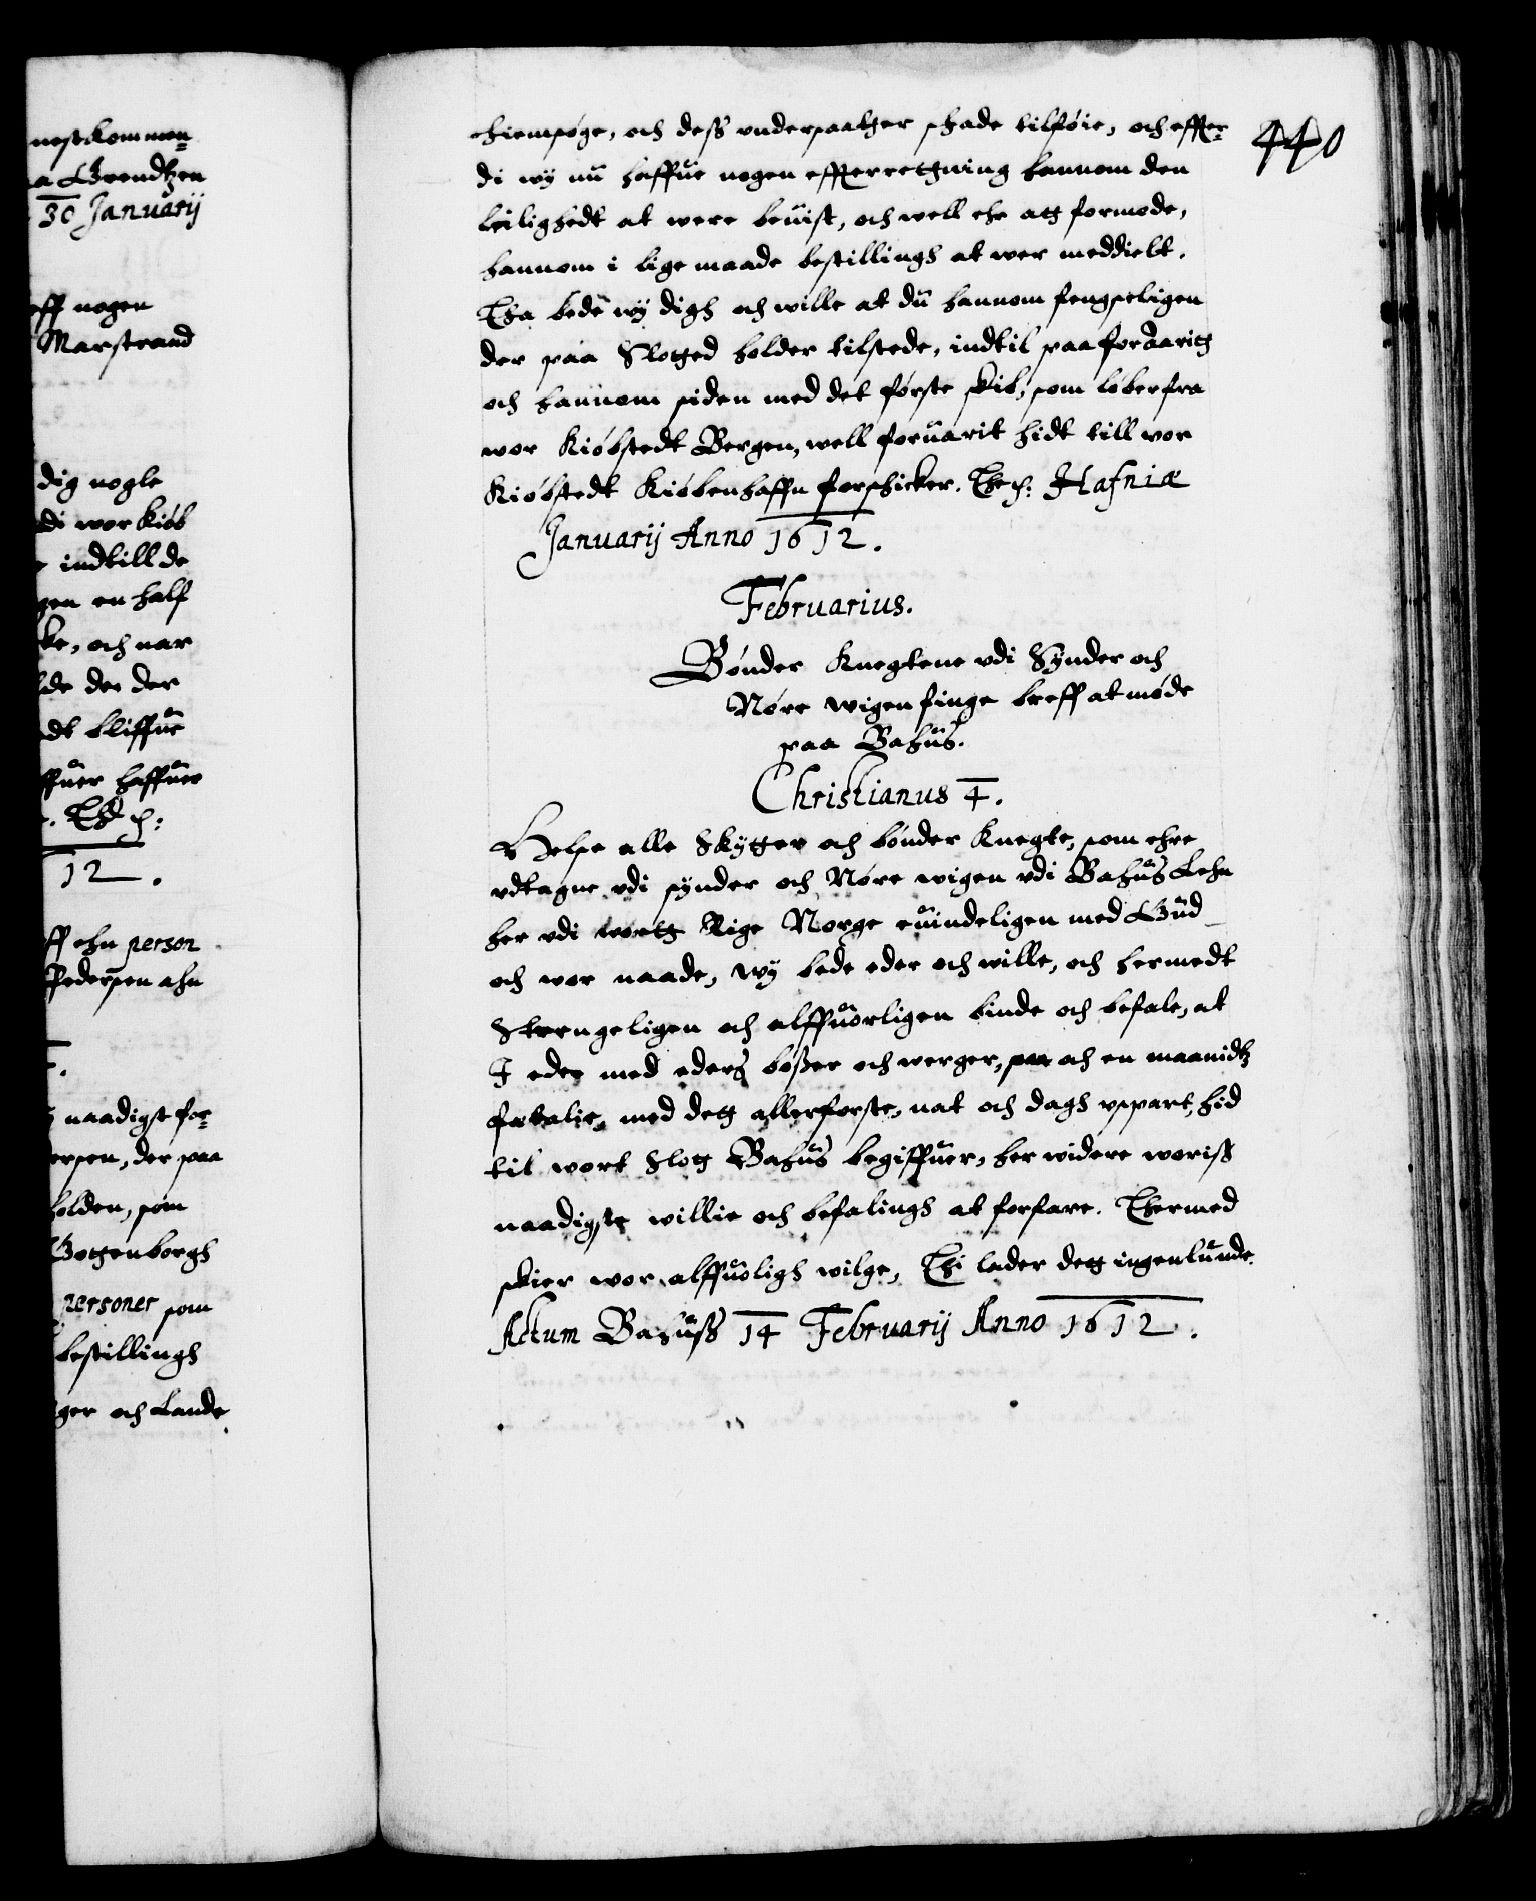 nestkommen=
a Grendtzen
30 Januarij
eff nogen
Marstrand
dig nogle
di wor kiøb
indtill de
gen en half
ke, och nar
lde de der
dt bliffue
ffuer haffuer
12.
ff ehn person
Pedersen ahn
naadigst for=
ersen, der paa
holden, som
Gottenborgh
personer som
bestillingh
ger och Lande
440
hiemsøge, och dess undersaatger schade tilføie, och effter=
di wy nu haffue nogen efferretgning hannom den
leilighedt at were beuist, och well ehr att formode,
hannom i lige maade bestillingh at wer meddielt.
Tha bede wy digh och wille at du hannom fengseligen
der paa Slotted holder tilstede, indtil paa foraaritt
och hannom siden med det første skib, som løber fra
wor kiøbstedt Bergen, well foruarit hidt till vor
kiøbstedt Kiøbenhaffn forschicker. Hafniæ
Januarij Anno 1612.
Februarius.
Bønder knegtene udi Synder och
Nøre wigen finge breff at møde
paa Bahus.
Christianus 4.
Helse alle Skytter och bønder knegte, som ehre
udtagne udi synder och Nøre wigen udi Bahus Lehn
her udi wortt Rige Norge euindeligen med Gud
och wor naade, wy bede eder och wille, och hermedt
Strengeligen och alffuorligen binde och befale, at
I eder med eders bøsser och werger, och en maanidtz
fetalie, med dett allerforste, nat och dagh uspart, hid
til wort Slott Bahus begiffuer, her widere woriss
naadigste willie och befalingh at forfare. Thermed
skier wor alffuoligh wilge, Thi lader dett ingenlunde.
Actum Bahuss 14 Februarij Anno 1612.